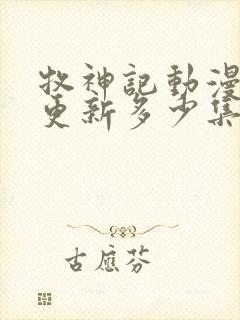 牧神記動漫
更新多少集
古應芬